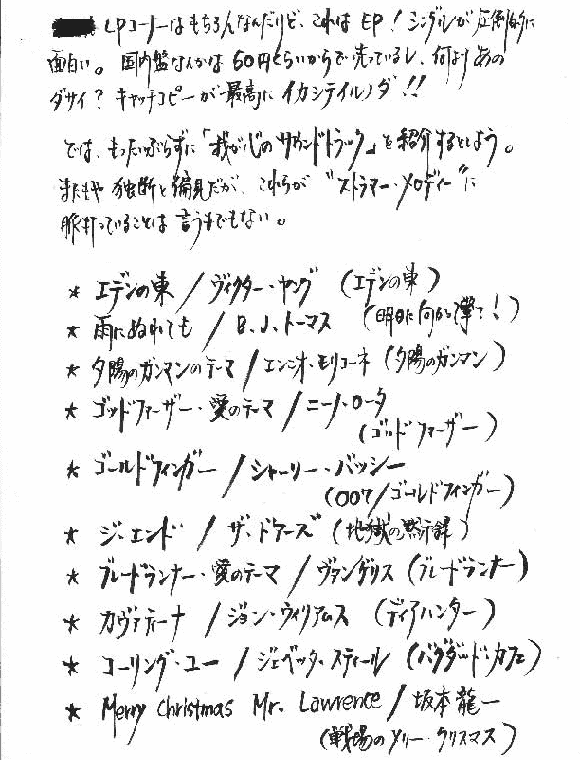 LPコーナーはもちろんなんだけど、これはEP!シングルが圧倒的に
面白い。国内盤なんかは50円くらいからで売っているし、何よりあの
ダサイ?キャッチコピーが最高にイカシテイルノダ!!
では、もったいぶらずに「我が心のサウンドトラック」を紹介するとしよう。
またもや独断と偏見だが、これらが“ストラマー・メロディー”に
脈打っていることは言うまでもない。
* エデンの東/ヴィクター・ヤング(エデンの東)
* 雨にぬれても/B.J.トーマス(明日に向って撃て!)
* 夕陽のガンマンのテーマ/エンニオ・モリコーネ(夕陽のガンマン)
* ゴッドファーザー・愛のテーマ/ニーノ・ロータ
(ゴッドファーザー)
* ゴールドフィンガー/シャーリー・バッシー
(007/ゴールドフィンガー)
* ジ・エンド/ザ・ドアーズ(地獄の黙示録)
* ブレードランナー・愛のテーマ/ヴァンゲリス(ブレードランナー)
* カヴァティーナ/ジョン・ウィリアムス(ディアハンター)
* コーリング・ユー/ジェベッタ・スティール(バグダッド・カフェ)
* Merry Christmas Mr. Lawrence/坂本龍一
(戦場のメリー・クリスマス)